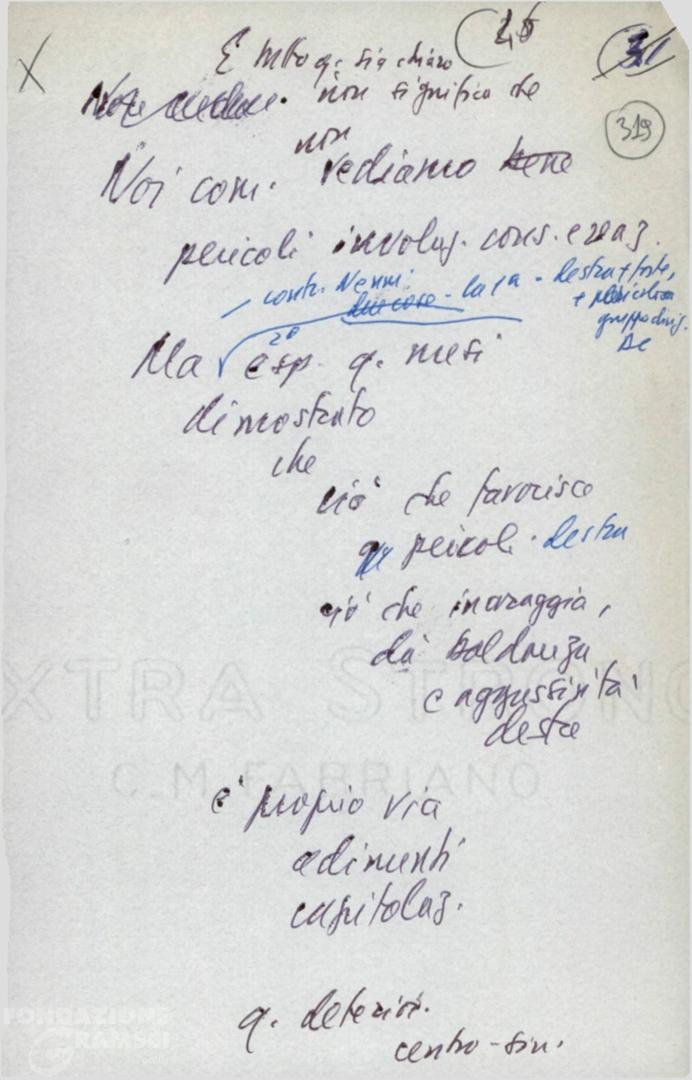 25
31
319
E tutto q. sia chiaro
non significa che
non
Noi com. vediamo bene
pericoli involuz. cons. e reaz.
contr. Nenni:
due cose - la 1ª - destra + forte,
+ pericolosa
gruppo dirig.
DC
2ª
Ma esp. q. mesi
dimostrato
che
ciò che favorisce
pericoli destra
ciò che incoraggia,
dà baldanza
e aggressività
destre
è proprio via
cedimenti
capitolaz.
q. deterior.
centro-sin.
EXTRA STRONG
C.M. FABRIANO
FONDAZIONE
GRAMSCI